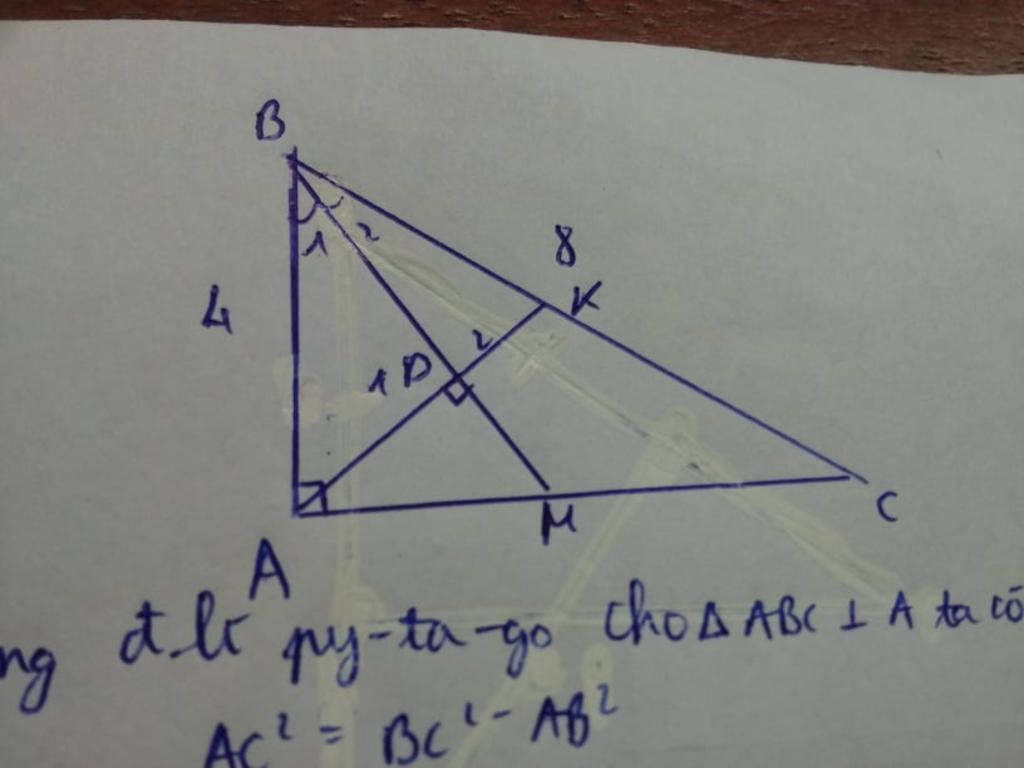 B
1 2
8
4
K
2
1 D
M
C
A
ng đ.lí py-ta-go cho Δ ABC ⊥ A ta có
AC² = BC² - AB²